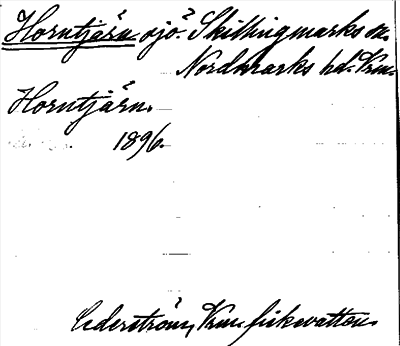 Horntjärn sjö? Skillingmarks sn.
Nordmarks hd. Vrm.
Horntjärn.
1896.
Cederström, Vrm. fiskevatten.